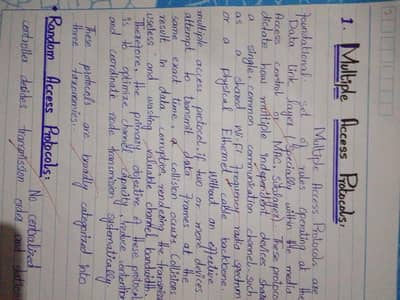 1. Multiple Access Protocols:
Multiple Access Protocols are
foundational set of rules operating at the
Data link layer (specially within the media
Access control or MAC sublayer). These protocols
dictate how multiple independent devices share
a single, common communication channel such
as a shared WiFi frequency radio spectrum
or a physical Ethernet cable backbone.
Without an effective
multiple access protocol, if two or more devices
attempt to transmit data frames at the
same exact time, a collision occurs. Collisions
result in data corruption, rendering the
useless and wasting valuable channel bandwidth.
Therefore, the primary objective of these protocols
is to optimize channel capacity, reduce contention
and coordinate node transmission systematically
These protocols are broadly categorized into
three taxonomies:
• Random Access Protocols:
No centralized
controller decides transmission order and